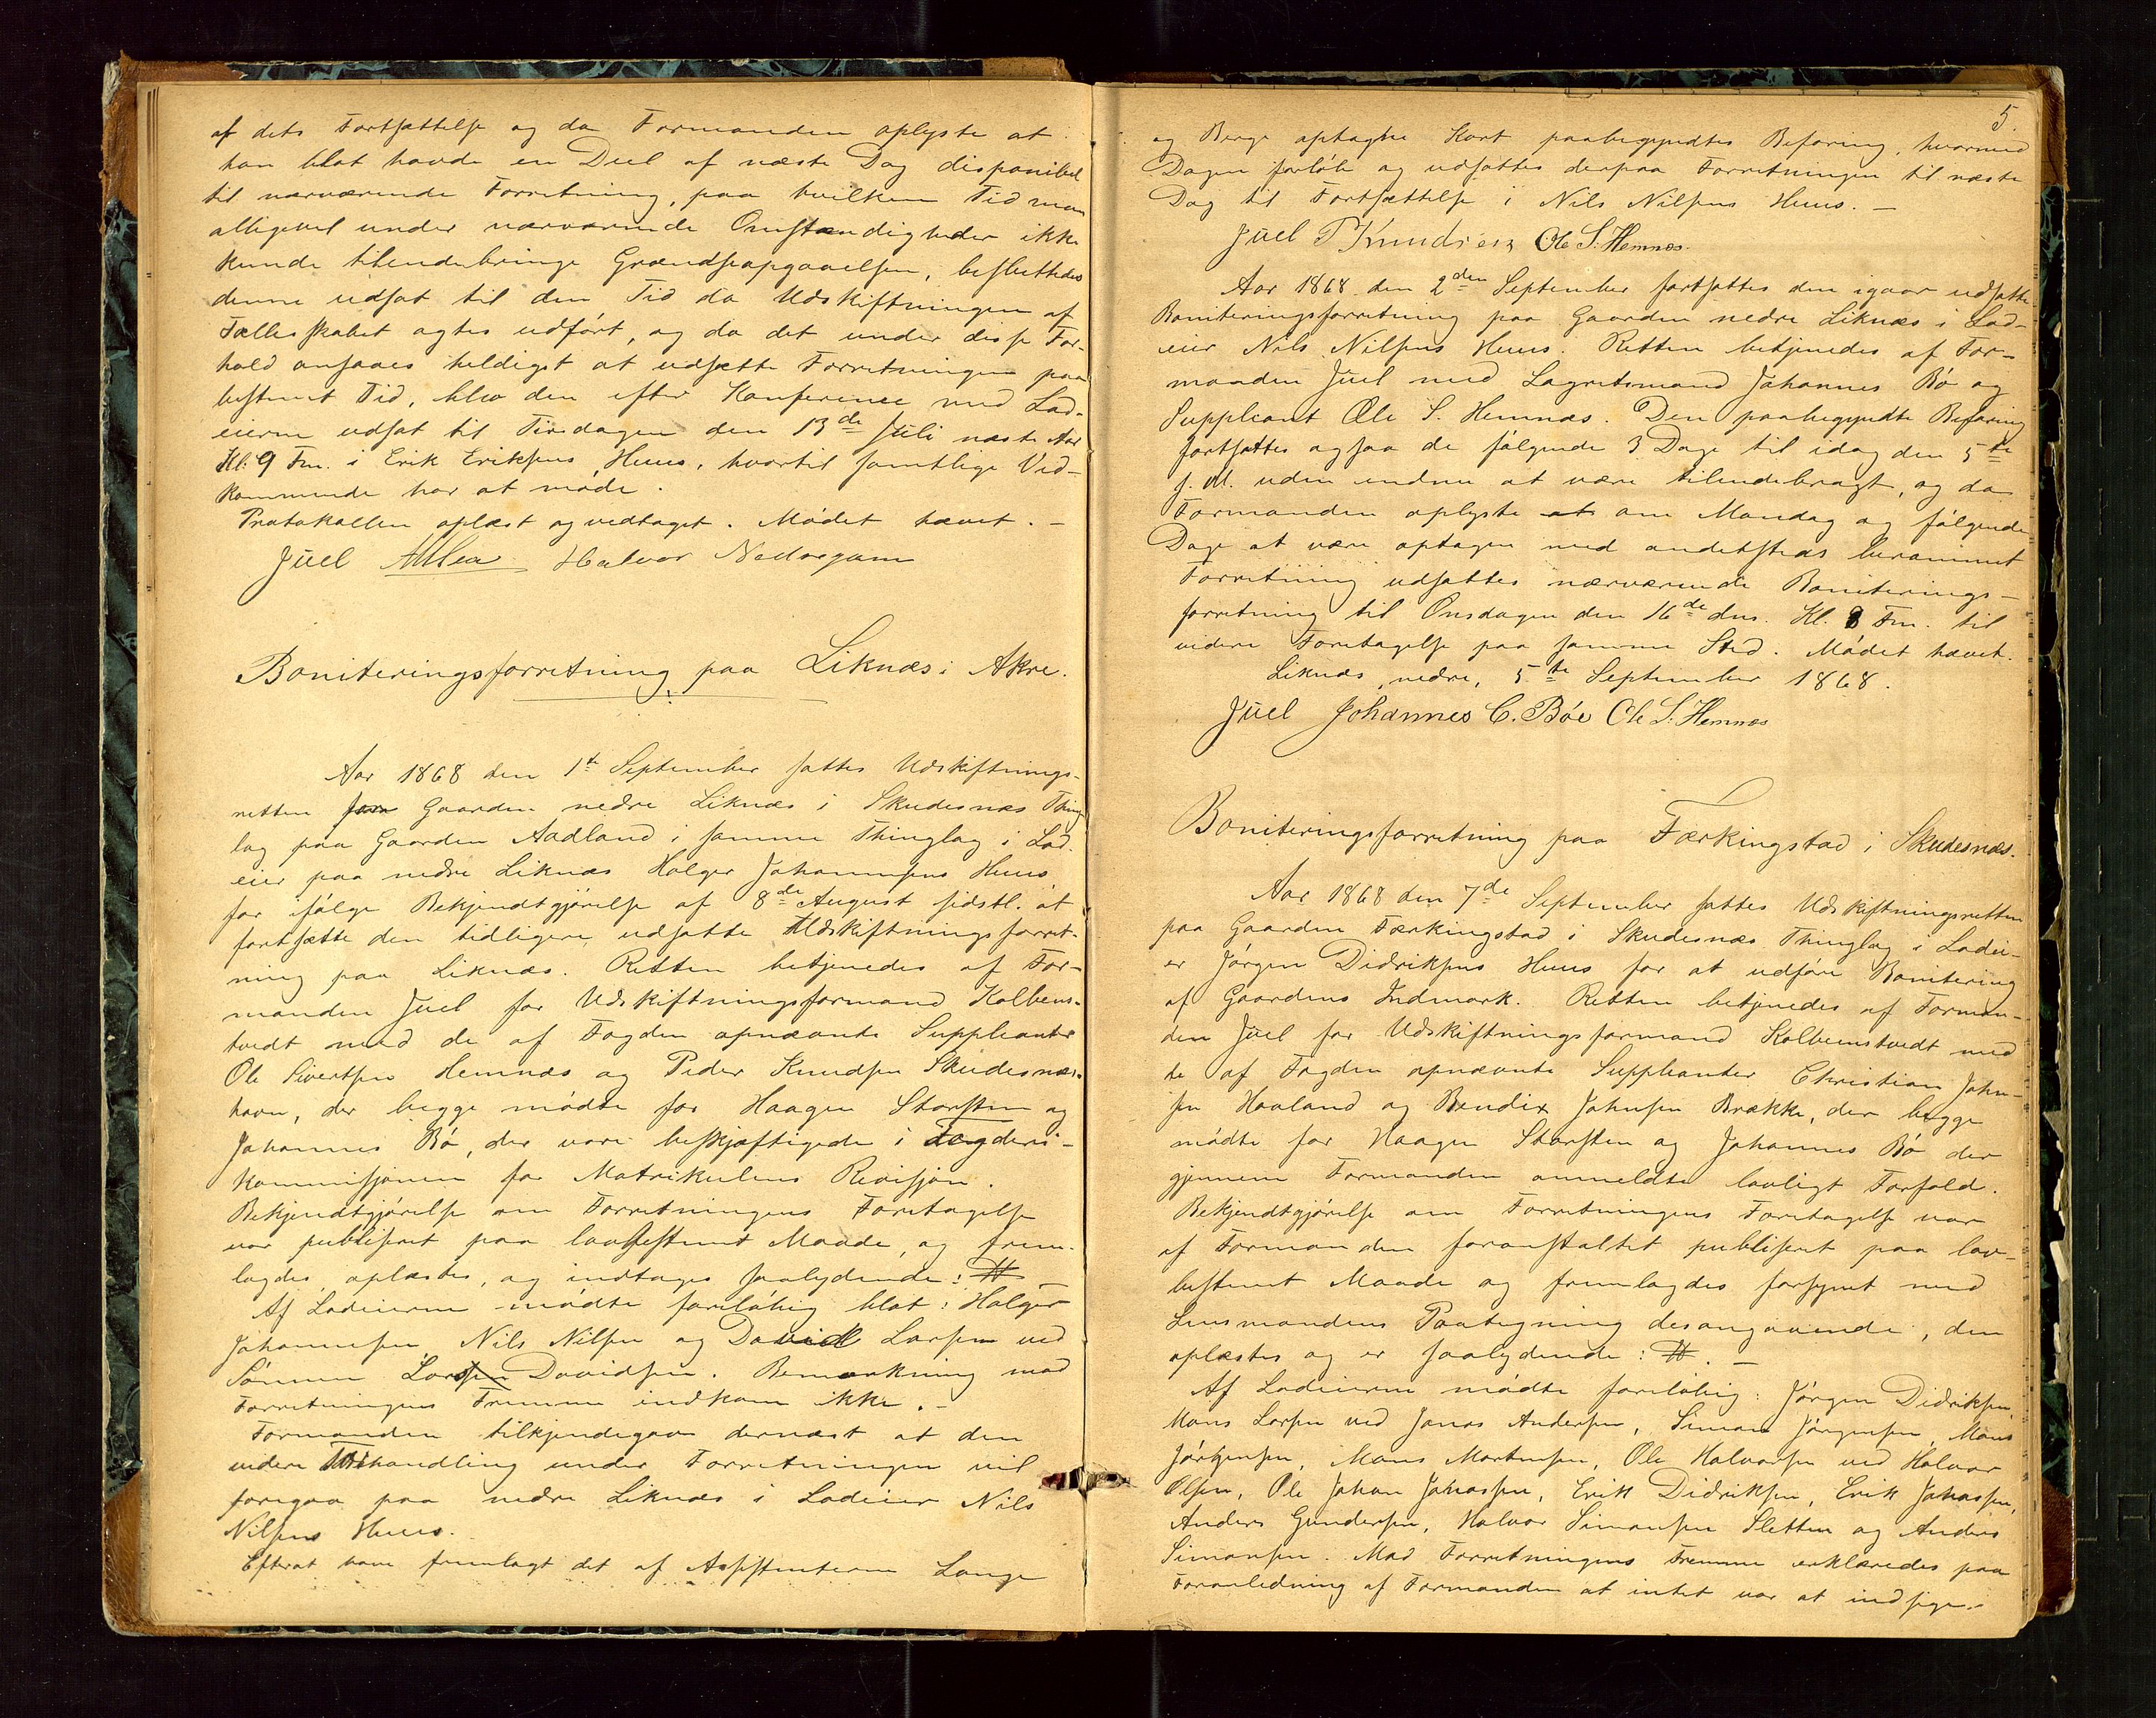 af dets Fortsættelse og da Formanden oplyste at
han blot havde en Deel af næste Dag disponibel
til nærværende Forretning, paa hvilken Tid man
alligevel under nærværende Omstændigheder ikke
kunde tilendebringe Grændseopgaaelsen, besluttedes
denne udsat til den Tid da Udskiftningen af
Fællesskabet agtes udført, og da det under disse For-
hold ansaaes heldigst at udsætte Forretningen paa
bestemt Tid, blev den efter Konference med Lod-
eierne udsat til Tirsdagen den 13de Juli næste Aar
Kl. 9 Fm. i Erik Eriksens Huus, hvortil samtlige Ved-
kommende har at møde.
Protokollen oplæst og vedtaget. Mødet hævet. –
Juel Halvor
Boniteringsforretning paa Liknæs i Akre.
Aar 1868 den 1ste September sattes Udskiftnings-
retten Gaarden nedre Liknæs i Skudesnæs Thing
lag paa Gaarden Aadland i samme Thinglag i Lod-
eier paa nedre Liknæs Holger Johannesens Huus
for ifølge Bekjendtgjørelse af 8de August sidstl. at
fortsætte den tidligere udsatte Udskiftningsforret-
ning paa Liknæs. Retten betjenedes af For-
manden Juel for Udskiftningsformand Kolbens-
tvedt med de af Fogden opnævnte Suppleanter
Ole Sivertsen Hemnæs og Peder Knudsen Skudesnæs-
havn, der begge mødte for Haagen Storsten og
Johannes Bø, der vare beskjæftigede i Fogderi-
kommissjonen for Matrikulens Revisjon.
Bekjendtgjørelse om Forretningens Foretagelse
var publiseret paa lovbestemt Maade, og frem-
lagdes, oplæstes, og indtages saalydende: # –
Af Lodeierne mødte foreløbig blot: Holger
Johannesen, Nils Nilsen og David Larsen ved
Sønnen Lars Davidsen. Bemærkning mod
Forretningens Fremme indkom ikke. –
Formanden tilkjendegav dernæst at den
videre Behandling under Forretningen vil
foregaa paa nedre Liknæs i Lodeier Nils
Nilsens Huus.
Efterat have fremlagt det af Assistenterne Lange
5.
og Berge optagne Kart paabegyndtes Befaring, hvormed
Dagen forløb og udsattes derpaa Forretningen til næste
Dag til Fortsættelse i Nils Nilsens Huus. –
Juel P Knudsen Ole S. Hemnæs.
Aar 1868 den 2den September fortsattes den igaar udsatte
Boniteringsforretning paa Gaarden nedre Liknæs i Lod-
eier Nils Nilsens Huus. Retten betjenedes af For-
manden Juel med Lagretsmand Johannes Bø og
Suppleant Ole S. Hemnæs. Den paabegyndte Befaring
fortsattes ogsaa de følgende 3 Dage til idag den 5te
s. M. uden endnu at være tilendebragt, og da
Formanden oplyste at om Mandag og følgende
Dage at være optagen med andetsteds berammet
Forretning udsattes nærværende Boniterings-
forretning til Onsdagen den 16de dns. Kl. 8 Fm. til
videre Foretagelse paa samme Sted. Mødet hævet.
Liknæs, nedre, 5te September 1868.
Juel Johannes C. Bøe Ole S. Hemnæs
Boniteringsforretning paa Færkingstad i Skudesnæs.
Aar 1868 den 7de September sattes Udskiftningsretten
paa Gaarden Færkingstad i Skudesnæs Thinglag i Lodei-
er Jørgen Didriksens Huus for at udføre Bonitering
af Gaardens Indmark. Retten betjenedes af Forman-
den Juel for Udskiftningsformand Kolbenstvedt med
de af Fogden opnævnte Suppleanter Christian John-
sen Hovland og Bendix Johnsen Brække, der begge
mødte for Haagen Storsten og Johannes Bø der
gjennem Formanden anmeldte lovligt Forfald.
Bekjendtgjørelse om Forretningens Foretagelse var
af Formanden foranstaltet publiseret paa lov-
bestemt Maade og fremlagdes forsynet med
Lensmandens Paategning desangaaende, den
oplæstes og er saalydende: #. –
Af Lodeierne mødte foreløbig: Jørgen Didriksen,
Mons Larsen ved Jonas Andersen, Simon Jørgensen, Mons
Jørgensen, Mons Mortensen, Ole Halvorsen ved Halvor
Olsen, Ole Johan Johassen, Erik Didriksen, Erik Johassen,
Anders Gundersen, Halvor Simonsen Sletten og Anders
Simonsen. Mod Forretningens Fremme erklæredes paa
Foranledning af Formanden at intet var at indsige.–